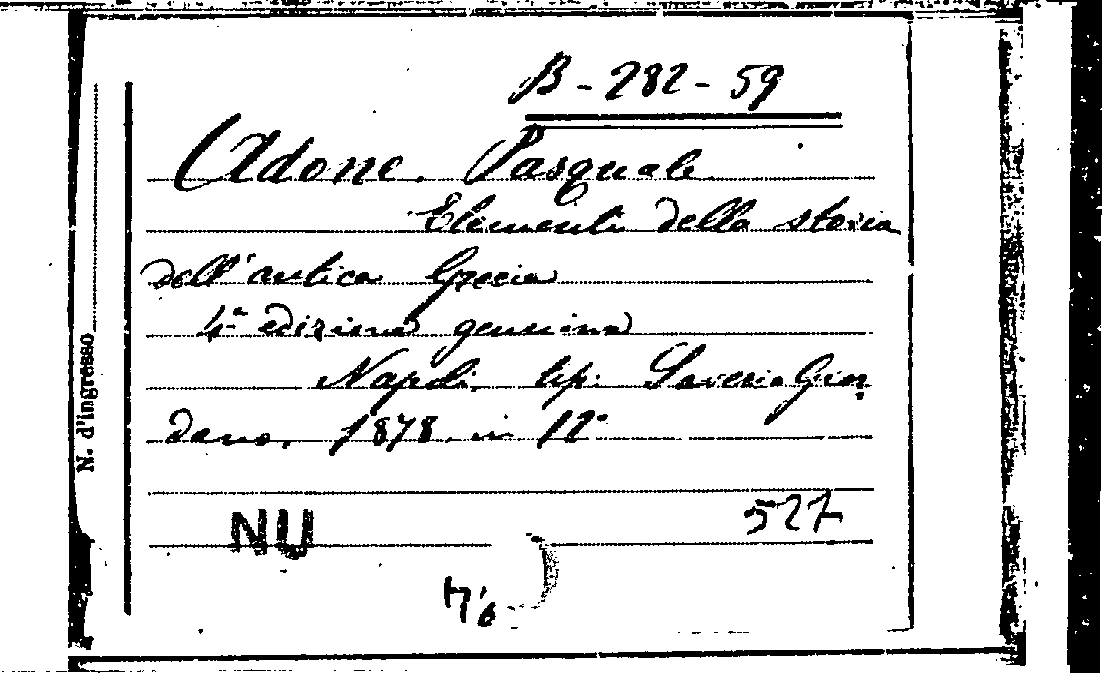 B - 282 - 59
Adone. Pasquale
Elementi della storia
dell'antica Grecia
4ª edizione genuina
Napoli. tip. Saverio Gior
dano. 1878. in 12°
NU
527
N. d'ingresso